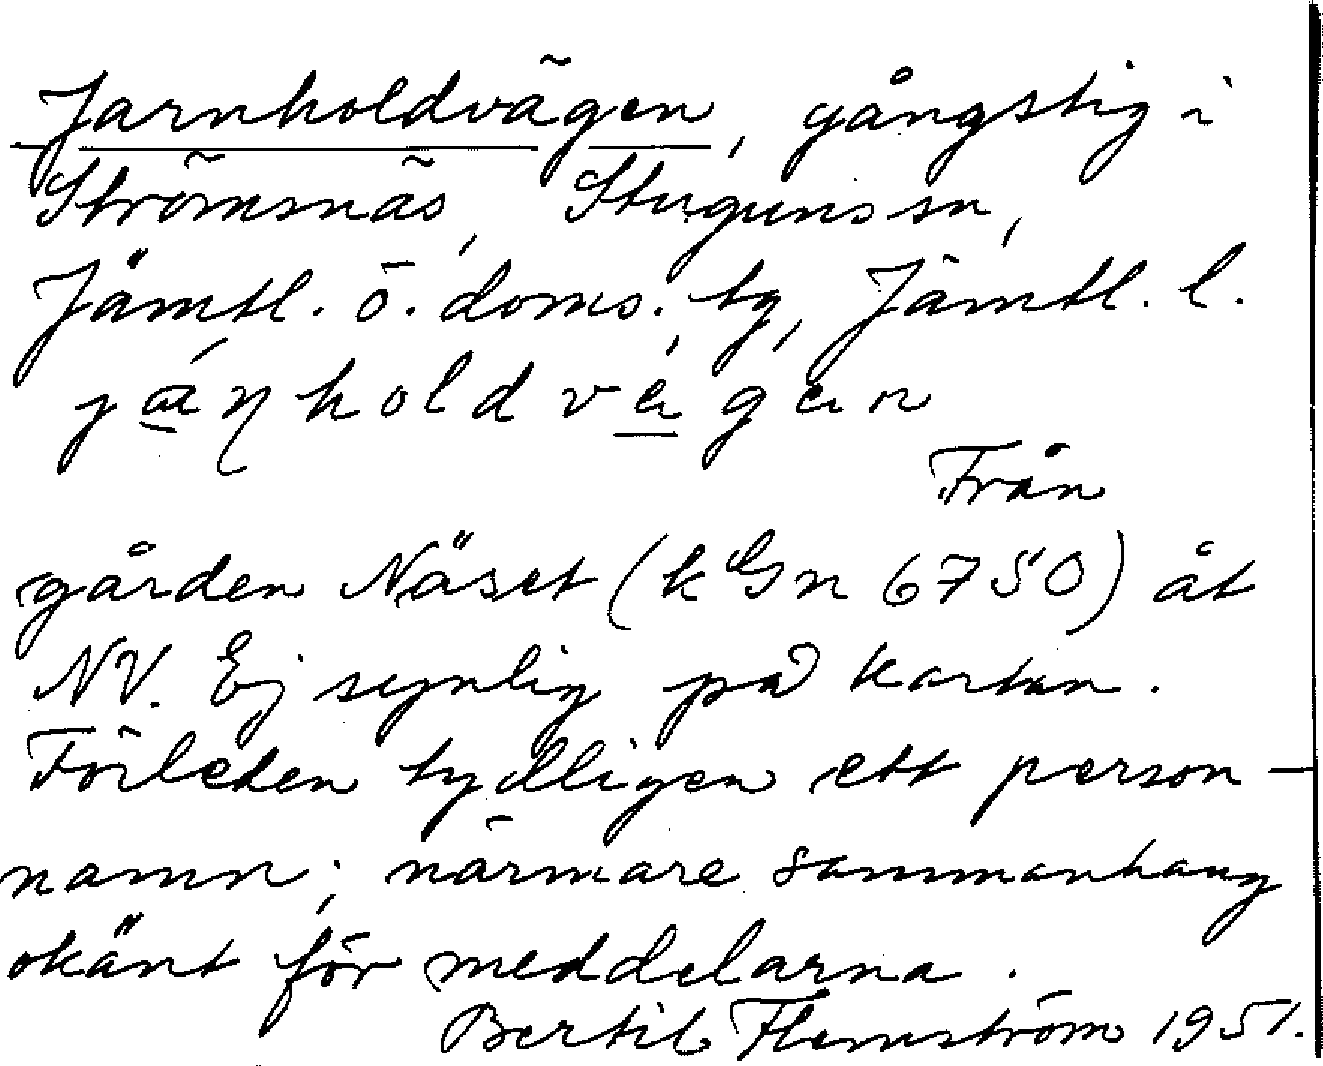 Jarnholdvägen, gångstig i
Strömsnäs, Stuguns sn,
Jämtl. ö. doms. tg, Jämtl. l.
ja̱ɳholdve̱gen
Från
gården Näset (kGn 6750) åt
NV. Ej synlig på kartan.
Förleden tydligen ett person-
namn; närmare sammanhang
okänt för meddelarna.
Bertil Flemström 1951.